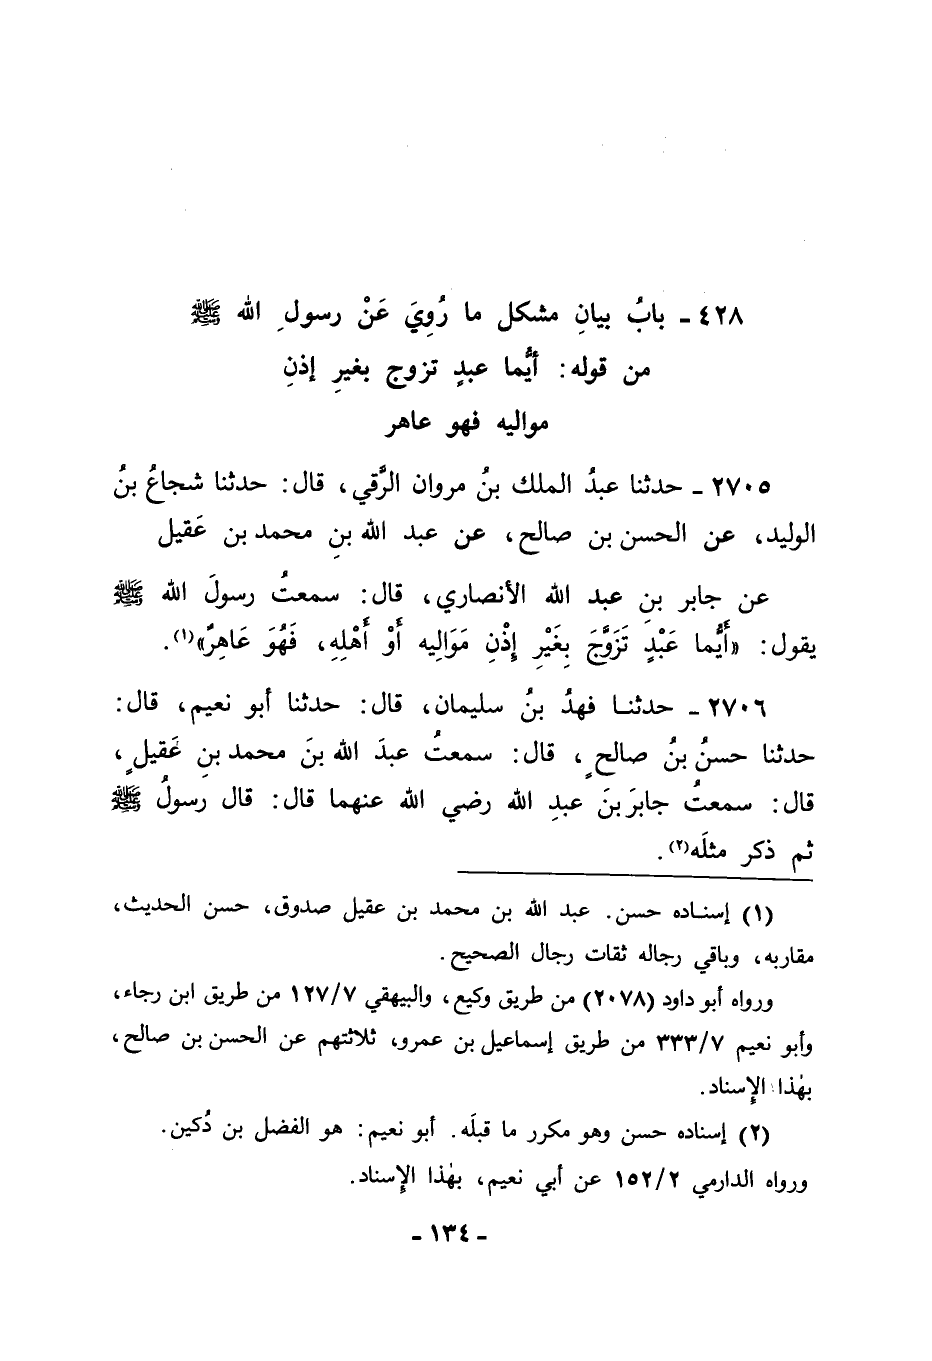 ٤٢٨ ـ بابُ بيانِ مشكل ما رُوِيَ عَنْ رسولِ الله ﷺ
من قوله: أيُّما عبدٍ تزوج بغيرِ إذنِ
مواليه فهو عاهر
٢٧٠٥ ـ حدثنا عبدُ الملك بنُ مروان الرَّقي، قال: حدثنا شجاعُ بنُ
الوليد، عن الحسن بن صالح، عن عبد الله بنِ محمد بن عَقيل
عن جابر بنِ عبد الله الأنصاري، قال: سمعتُ رسولَ الله ﷺ
يقول: «أَيُّما عَبْدٍ تَزَوَّجَ بِغَيْرِ إِذْنِ مَوَالِيه أَوْ أَهْلِهِ، فَهُوَ عَاهِرٌ»(١).
٢٧٠٦ ـ حدثنا فهدُ بنُ سليمان، قال: حدثنا أبو نعيم، قال:
حدثنا حسنُ بنُ صالحٍ، قال: سمعتُ عبدَ الله بنَ محمد بنِ عَقيلٍ،
قال: سمعتُ جابرَ بنَ عبدِ الله رضي الله عنهما قال: قال رسولُ ﷺ
ثم ذكر مثلَه(٢).
(١) إسناده حسن. عبد الله بن محمد بن عقيل صدوق، حسن الحديث،
مقاربه، وباقي رجاله ثقات رجال الصحيح.
ورواه أبو داود (٢٠٧٨) من طريق وكيع، والبيهقي ١٢٧/٧ من طريق ابن رجاء،
وأبو نعيم ٣٣٣/٧ من طريق إسماعيل بن عمرو، ثلاثتهم عن الحسن بن صالح،
بهٰذا الإِسناد.
(٢) إسناده حسن وهو مكرر ما قبلَه. أبو نعيم: هو الفضل بن دُكين.
ورواه الدارمي ١٥٢/٢ عن أبي نعيم، بهٰذا الإِسناد.
- ١٣٤ -